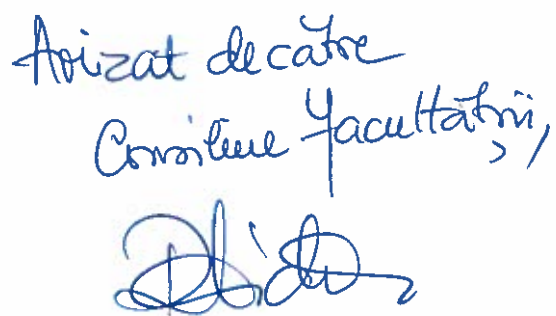 Avizat de către
Consiliul Facultății,